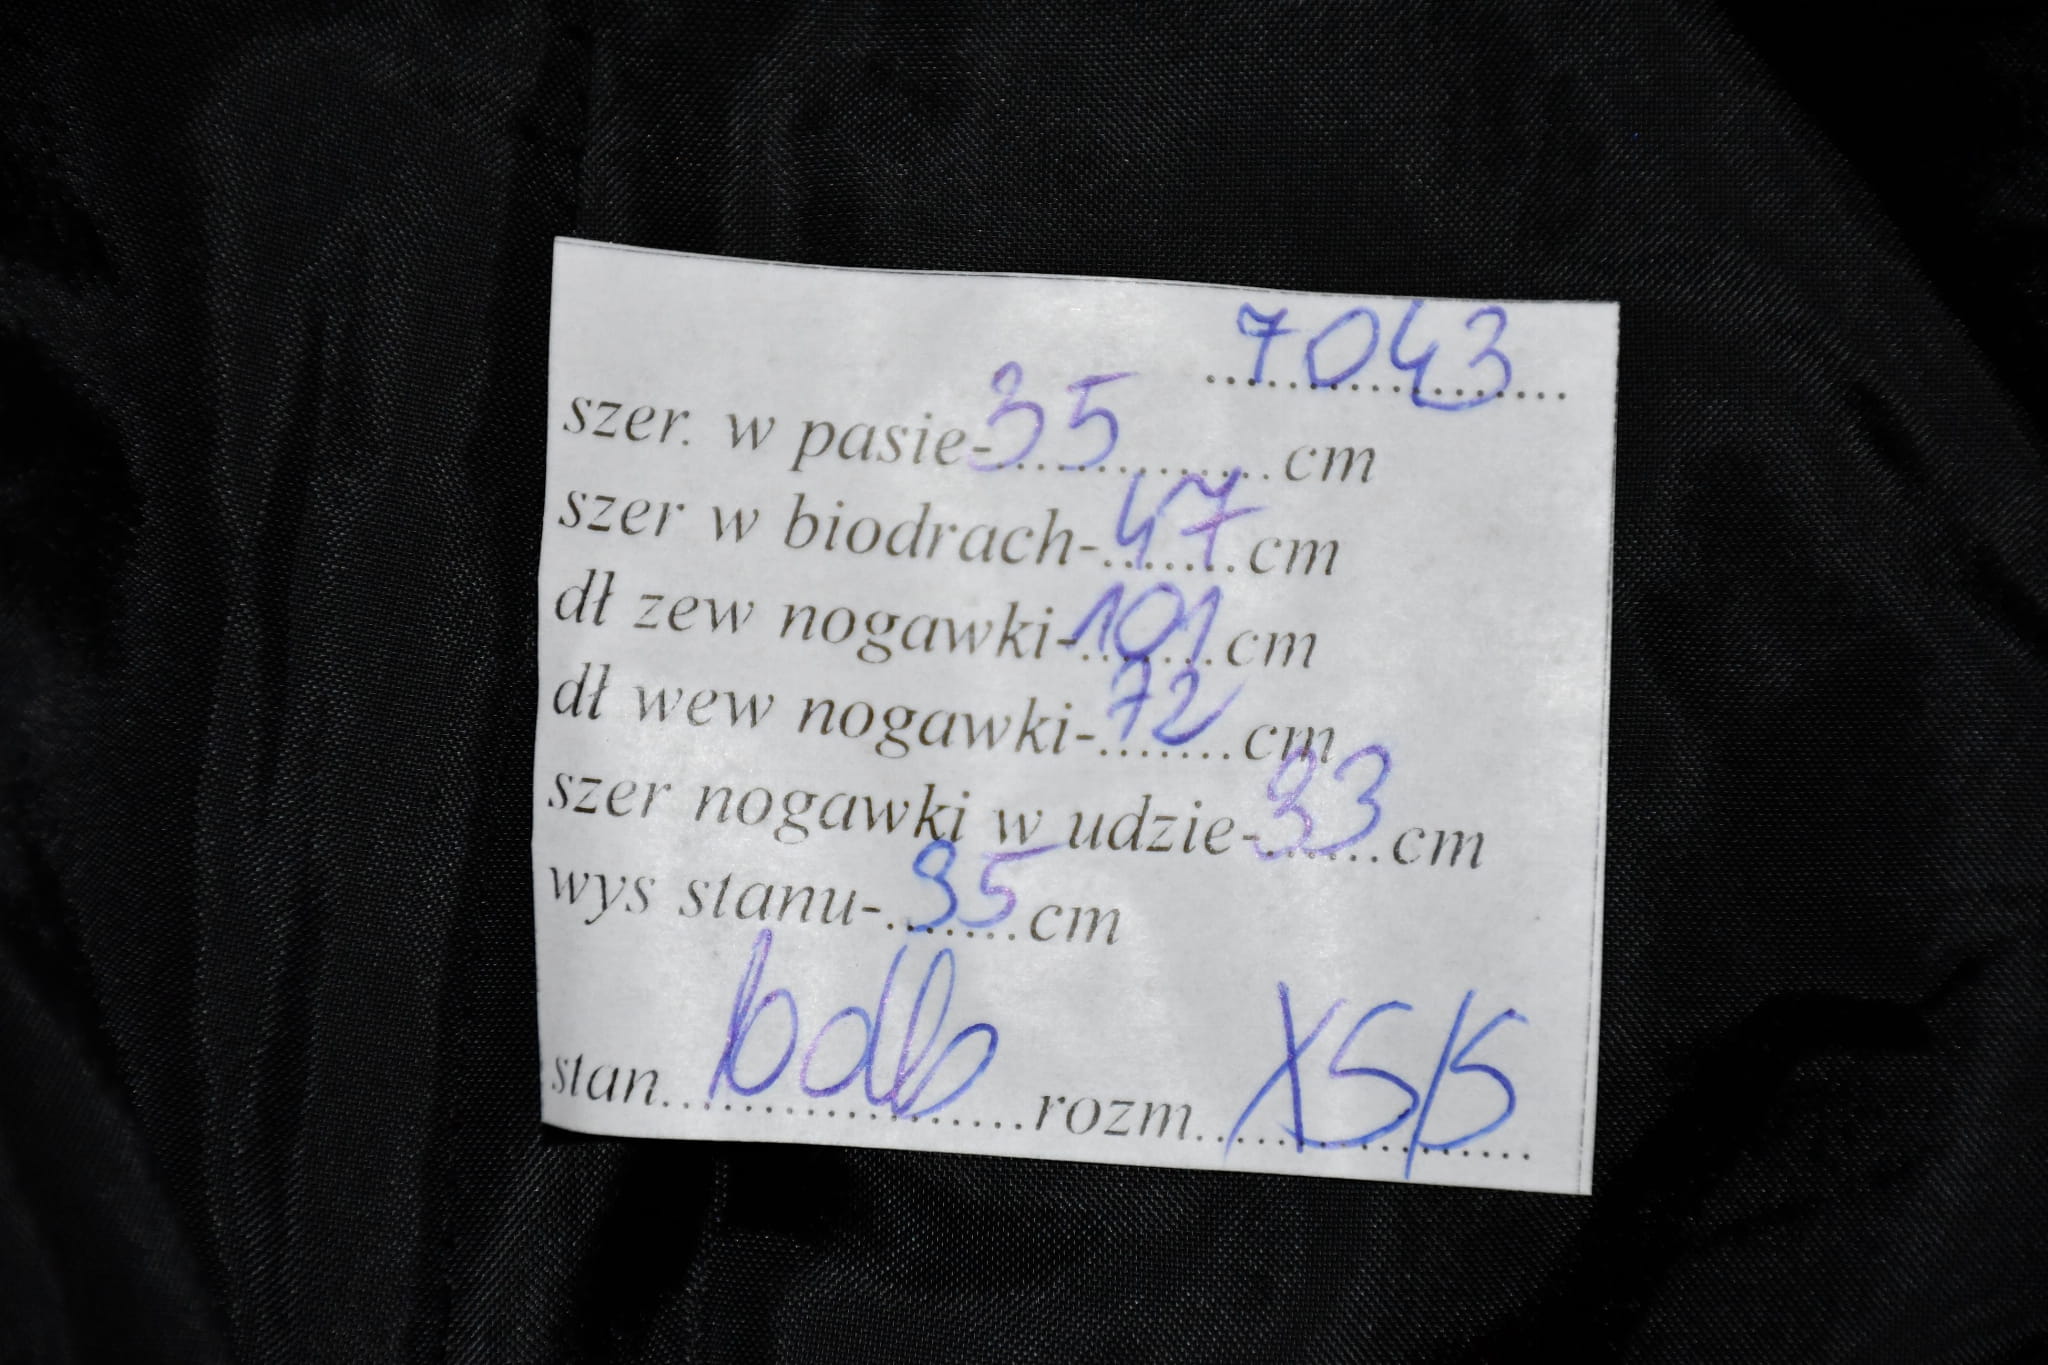 7043
szer. w pasie-35..............cm
szer w biodrach-47cm
dł zew nogawki-101cm
dł wew nogawki-72cm
szer nogawki w udzie-33cm
wys stanu-35cm
stan bdb rozm XS/S